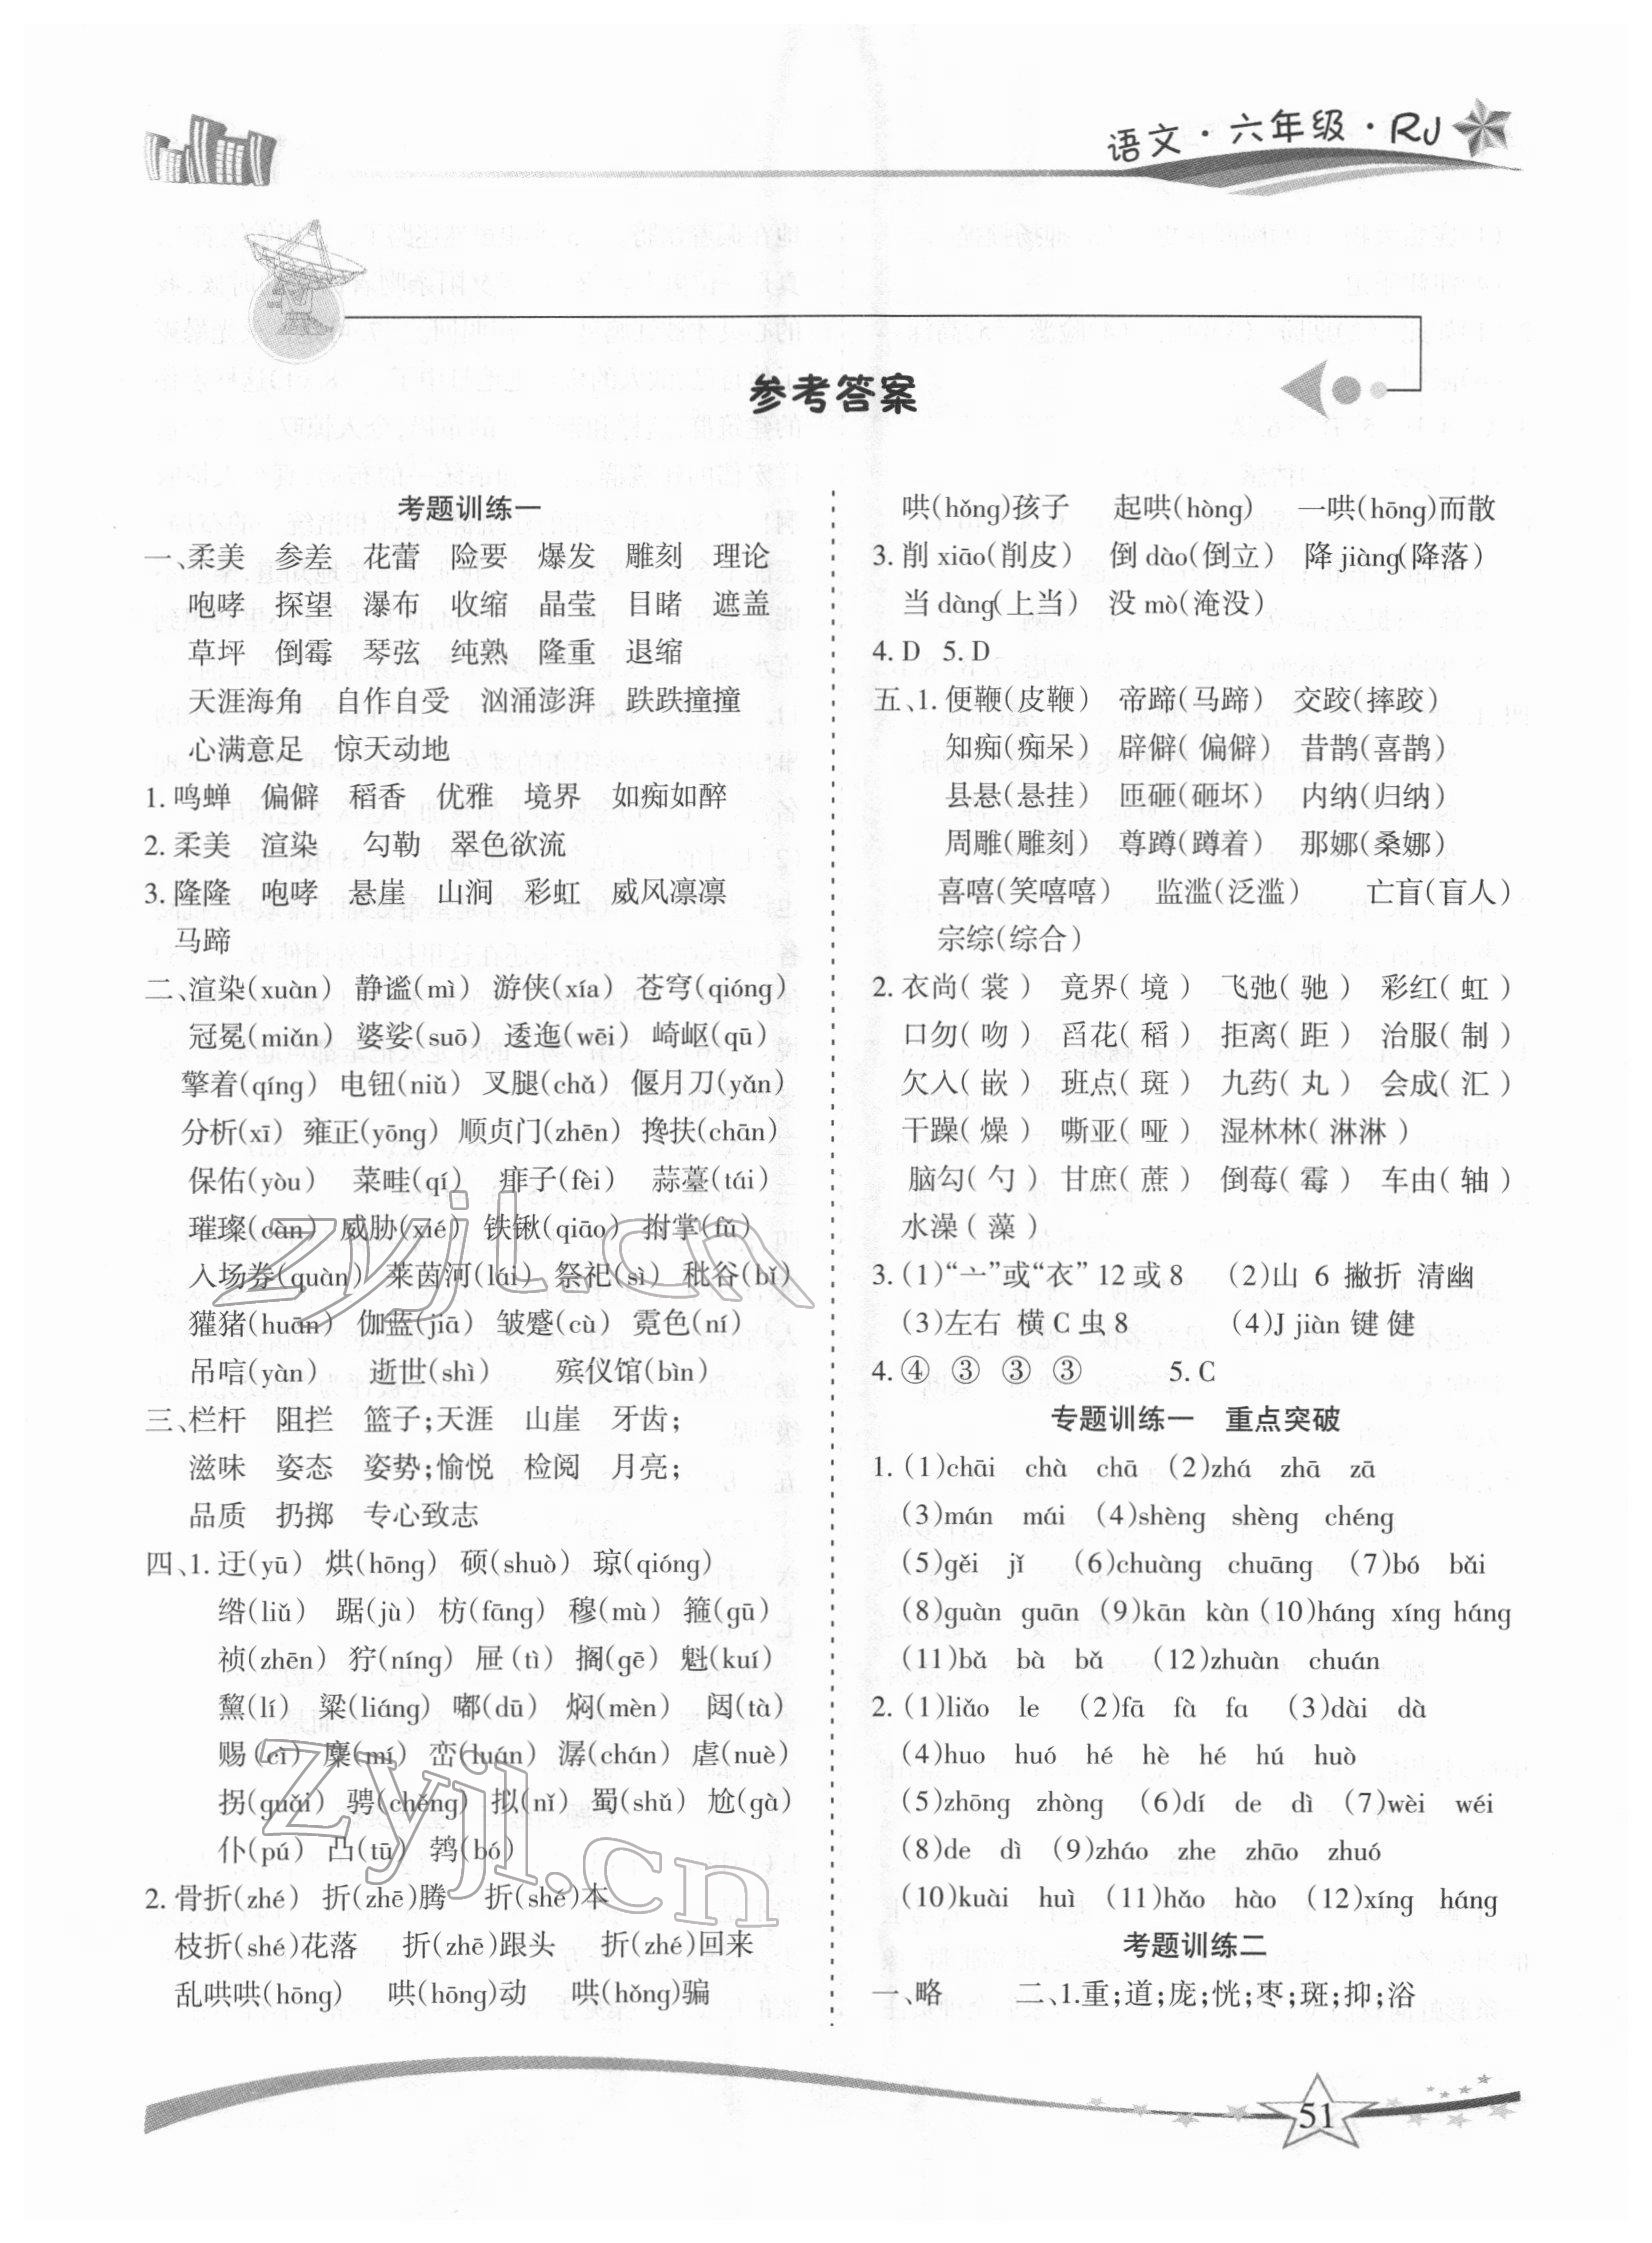 语文·六年级·RJ
参考答案
考题训练一
一、柔美 参差 花蕾 险要 爆发 雕刻 理论
咆哮 探望 瀑布 收缩 晶莹 目睹 遮盖
草坪 倒霉 琴弦 纯熟 隆重 退缩
天涯海角 自作自受 汹涌澎湃 跌跌撞撞
心满意足 惊天动地
1. 鸣蝉 偏僻 稻香 优雅 境界 如痴如醉
2. 柔美 渲染 勾勒 翠色欲流
3. 隆隆 咆哮 悬崖 山涧 彩虹 威风凛凛
马蹄
二、渲染(xuàn) 静谧(mì) 游侠(xía) 苍穹(qióng)
冠冕(miǎn) 婆娑(suō) 逶迤(wēi) 崎岖(qū)
擎着(qíng) 电钮(niǔ) 叉腿(chǎ) 偃月刀(yǎn)
分析(xī) 雍正(yōng) 顺贞门(zhēn) 搀扶(chān)
保佑(yòu) 菜畦(qí) 痱子(fèi) 蒜薹(tái)
璀璨(càn) 威胁(xié) 铁锹(qiāo) 拊掌(fǔ)
入场券(quàn) 莱茵河(lái) 祭祀(sì) 秕谷(bǐ)
獾猪(huān) 伽蓝(jiā) 皱蹙(cù) 霓色(ní)
吊唁(yàn) 逝世(shì) 殡仪馆(bìn)
三、栏杆 阻拦 篮子;天涯 山崖 牙齿;
滋味 姿态 姿势;愉悦 检阅 月亮;
品质 扔掷 专心致志
四、1. 迂(yū) 烘(hōng) 硕(shuò) 琼(qióng)
绺(liǔ) 踞(jù) 枋(fāng) 穆(mù) 箍(gū)
祯(zhēn) 狞(níng) 屉(tì) 搁(gē) 魁(kuí)
黧(lí) 粱(liáng) 嘟(dū) 焖(mèn) 闼(tà)
赐(cì) 麋(mí) 峦(luán) 潺(chán) 虐(nuè)
拐(guǎi) 骋(chěng) 拟(nǐ) 蜀(shǔ) 尬(gà)
仆(pú) 凸(tū) 鹁(bó)
2. 骨折(zhé) 折(zhē)腾 折(shé)本
枝折(shé)花落 折(zhē)跟头 折(zhé)回来
乱哄哄(hōng) 哄(hōng)动 哄(hǒng)骗
哄(hǒng)孩子 起哄(hòng) 一哄(hōng)而散
3. 削 xiāo(削皮) 倒 dào(倒立) 降 jiàng(降落)
当 dàng(上当) 没 mò(淹没)
4. D 5. D
五、1. 便鞭(皮鞭) 帝蹄(马蹄) 交跤(摔跤)
知痴(痴呆) 辟僻( 偏僻) 昔鹊(喜鹊)
县悬(悬挂) 匝砸(砸坏) 内纳(归纳)
周雕(雕刻) 尊蹲(蹲着) 那娜(桑娜)
喜嘻(笑嘻嘻) 监滥(泛滥) 亡盲(盲人)
宗综(综合)
2. 衣尚( 裳 ) 竟界( 境 ) 飞弛( 驰 ) 彩红( 虹 )
口勿( 吻 ) 舀花( 稻 ) 拒离( 距 ) 治服( 制 )
欠入( 嵌 ) 班点( 斑 ) 九药( 丸 ) 会成( 汇 )
干躁( 燥 ) 嘶亚( 哑 ) 湿林林( 淋淋 )
脑勾( 勺 ) 甘庶( 蔗 ) 倒莓( 霉 ) 车由( 轴 )
水澡( 藻 )
3. (1)“亠”或“衣” 12 或 8 (2)山 6 撇折 清幽
(3)左右 横 C 虫 8 (4)J jiàn 键 健
4. ④ ③ ③ ③ 5. C
专题训练一 重点突破
1. (1)chāi chà chā (2)zhá zhā zā
(3)mán mái (4)shèng shèng chéng
(5)gěi jǐ (6)chuàng chuāng (7)bó bǎi
(8)guàn guān (9)kān kàn (10)háng xíng háng
(11)bǎ bà bǎ (12)zhuàn chuán
2. (1)liǎo le (2)fā fà fa (3)dài dà
(4)huo huó hé hè hé hú huò
(5)zhōng zhòng (6)dí de dì (7)wèi wéi
(8)de dì (9)zháo zhe zhāo zhuó
(10)kuài huì (11)hǎo hào (12)xíng háng
考题训练二
一、略 二、1.重;道;庞;恍;枣;斑;抑;浴
51
zyjl.cn
zyjl.cn